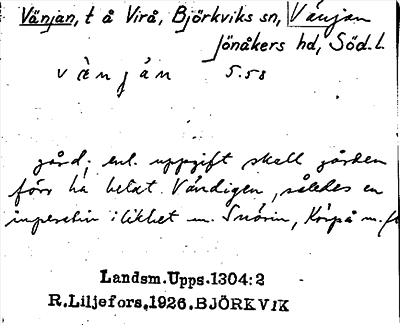 Vänjan, t å Virå, Björkviks sn, Vänjan
Jönåkers hd, Söd.l.
v ä n j á n 5.58
gård; enl. uppgift skall gården
förr ha hetat Vändigen, således en
imperativ i likhet m. Snörin, Körpå m.fl
Landsm.Upps.1304:2
R.Liljefors.1926.BJÖRKVIK